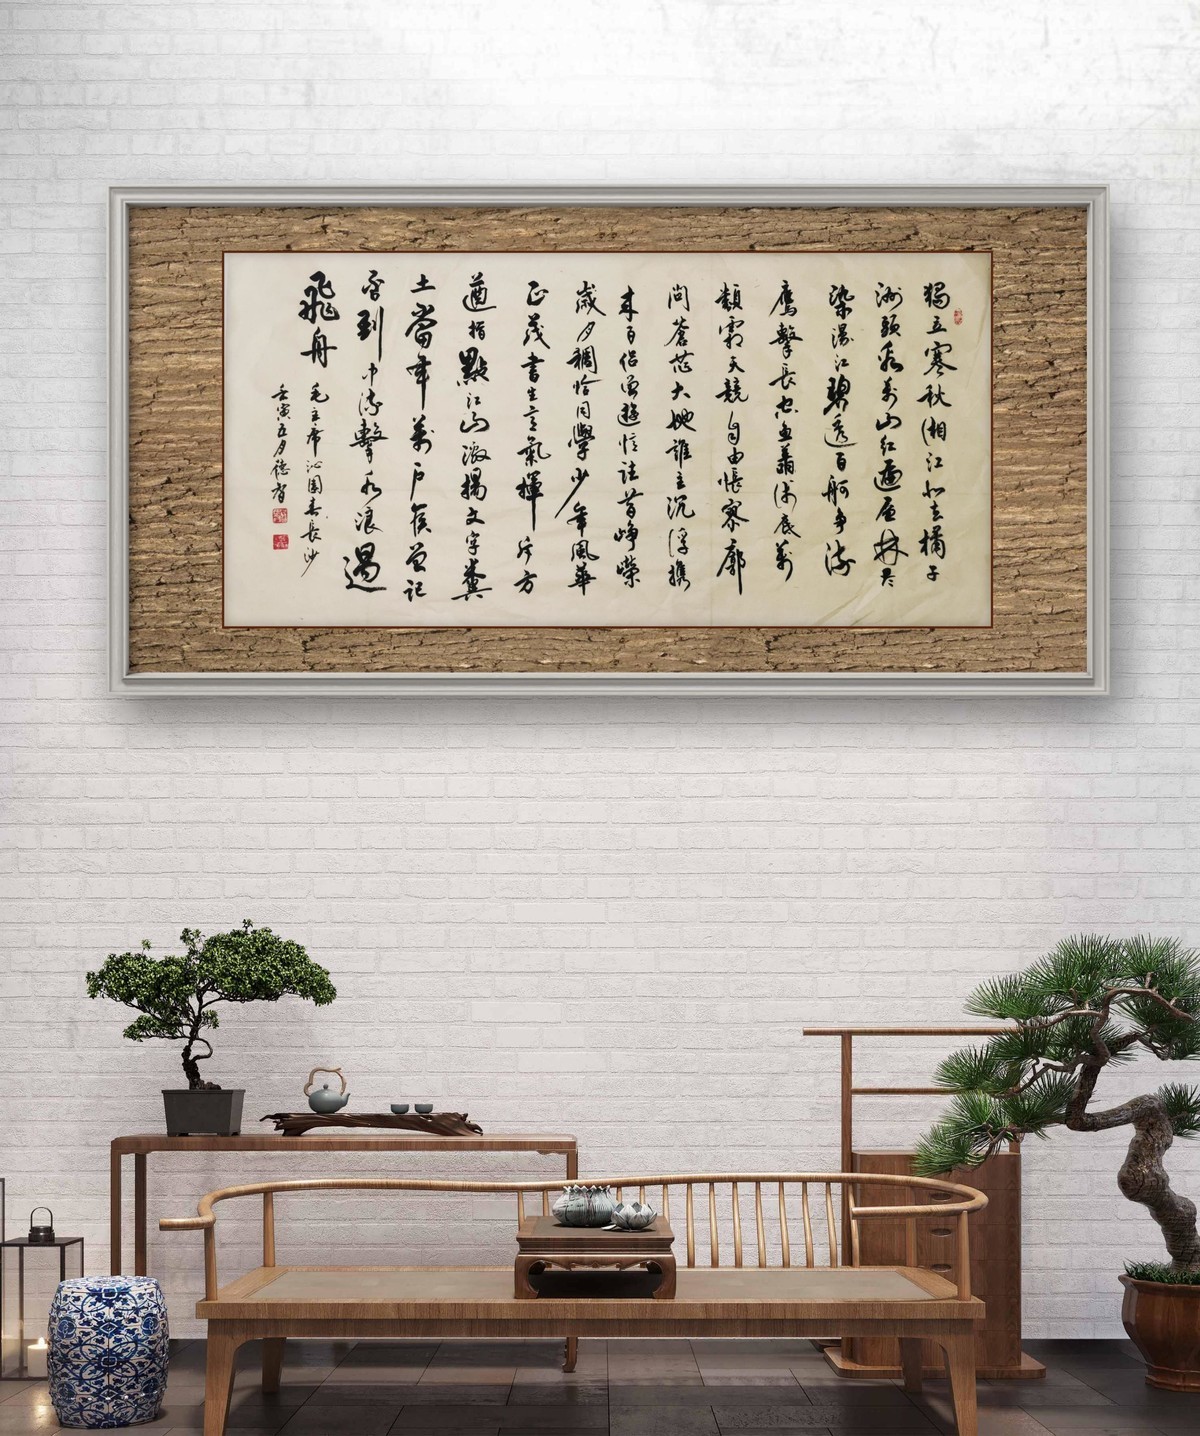 獨立寒秋湘江北去橘子
洲頭看萬山紅遍層林盡
染漫江碧透百舸爭流
鷹擊長空魚翔淺底萬
類霜天競自由悵寥廓
問蒼茫大地誰主沉浮攜
來百侶曾遊憶往昔崢嶸
歲月稠恰同學少年風華
正茂書生意氣揮斥方
遒指點江山激揚文字糞
土當年萬戶侯曾記
否到中流擊水浪遏
飛舟
毛主席沁園春長沙
壬寅五月德智